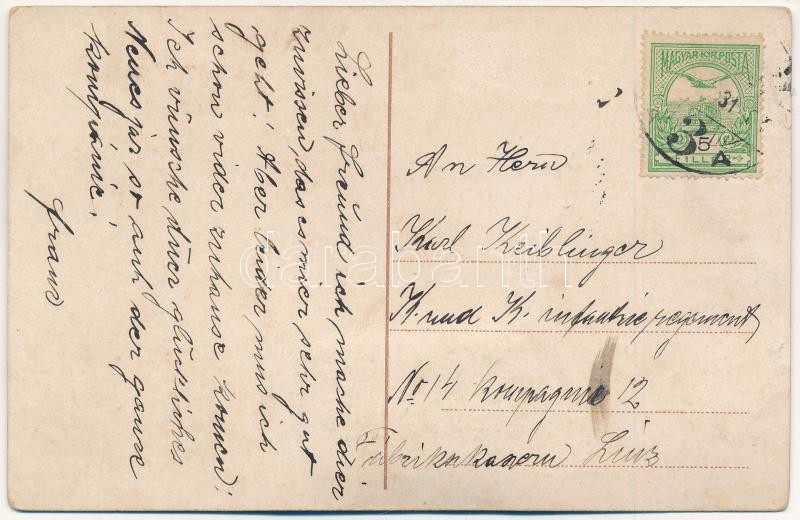 Lieber freund ich mache dier
zuwissen, das es mier sehr gut
geht! Aber leider mus ich
schon wider zuhause komen!
Ich wünsche Euer glükliches
Neues jar so auh der ganse
kompanie!
frans
MAGYAR KIR. POSTA
31
5
FILLÉR
3
A
An Hern
Karl Keiblinger
K. und K. infantrieregement
No 14 kompagnie 12
Fabrikskasern Linz
darabanth